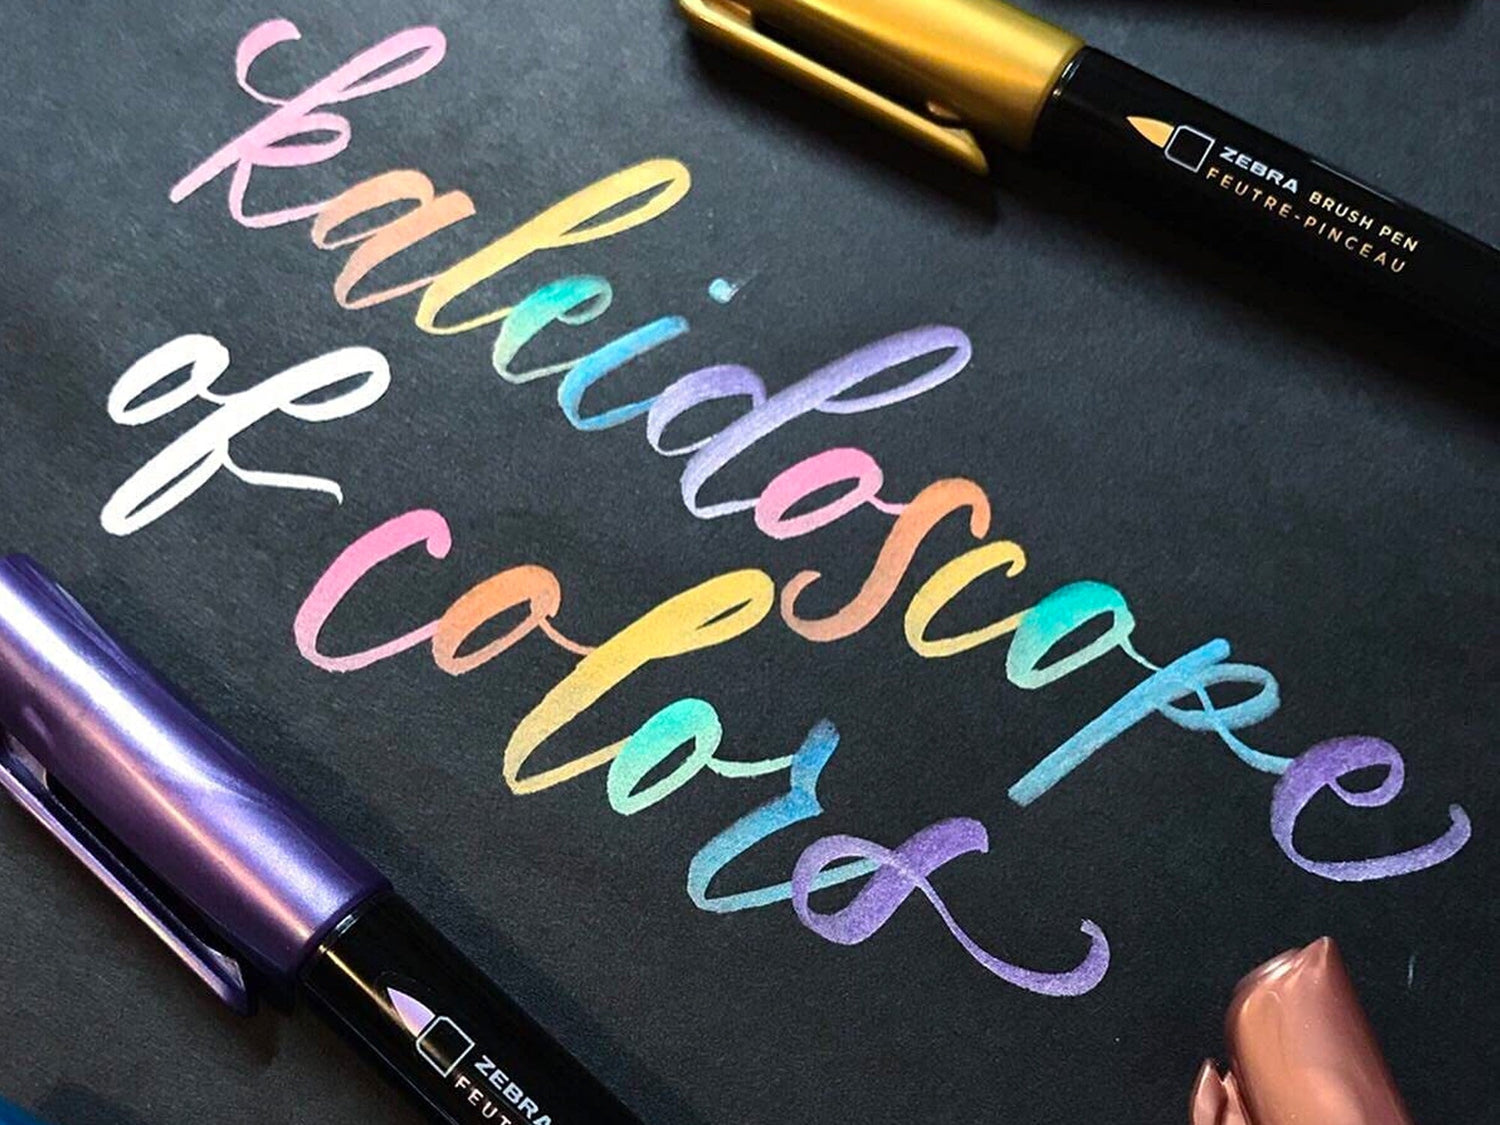 kaleidoscope
of
colors
ZEBRA BRUSH PEN
FEUTRE-PINCEAU
ZEBRA
FEUT